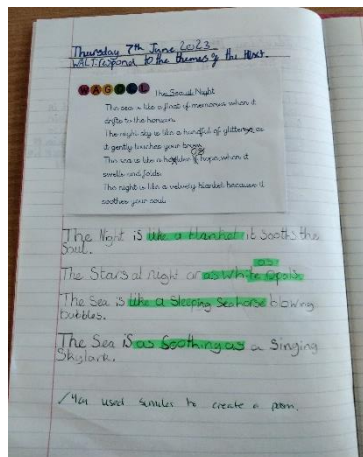 Thursday 7th June 2023
WALT: respond to the themes of the text.
WAGOLL
The Sea at Night
The sea is like a float of memories when it
drifts to the horizon.
The night sky is like a handful of glitter as
it gently touches your
The sea is like a of hope, when it
swells and folds.
The night is like a velvety blanket because it
soothes your soul.
The Night is like a blanket it sooths the
Soul.
as
The Stars at night ar as white opals.
The Sea is like a Sleeping Seahorse blowing
bubbles.
The Sea is as Soothing as a Singing
Skylark.
used similes to create a poem.